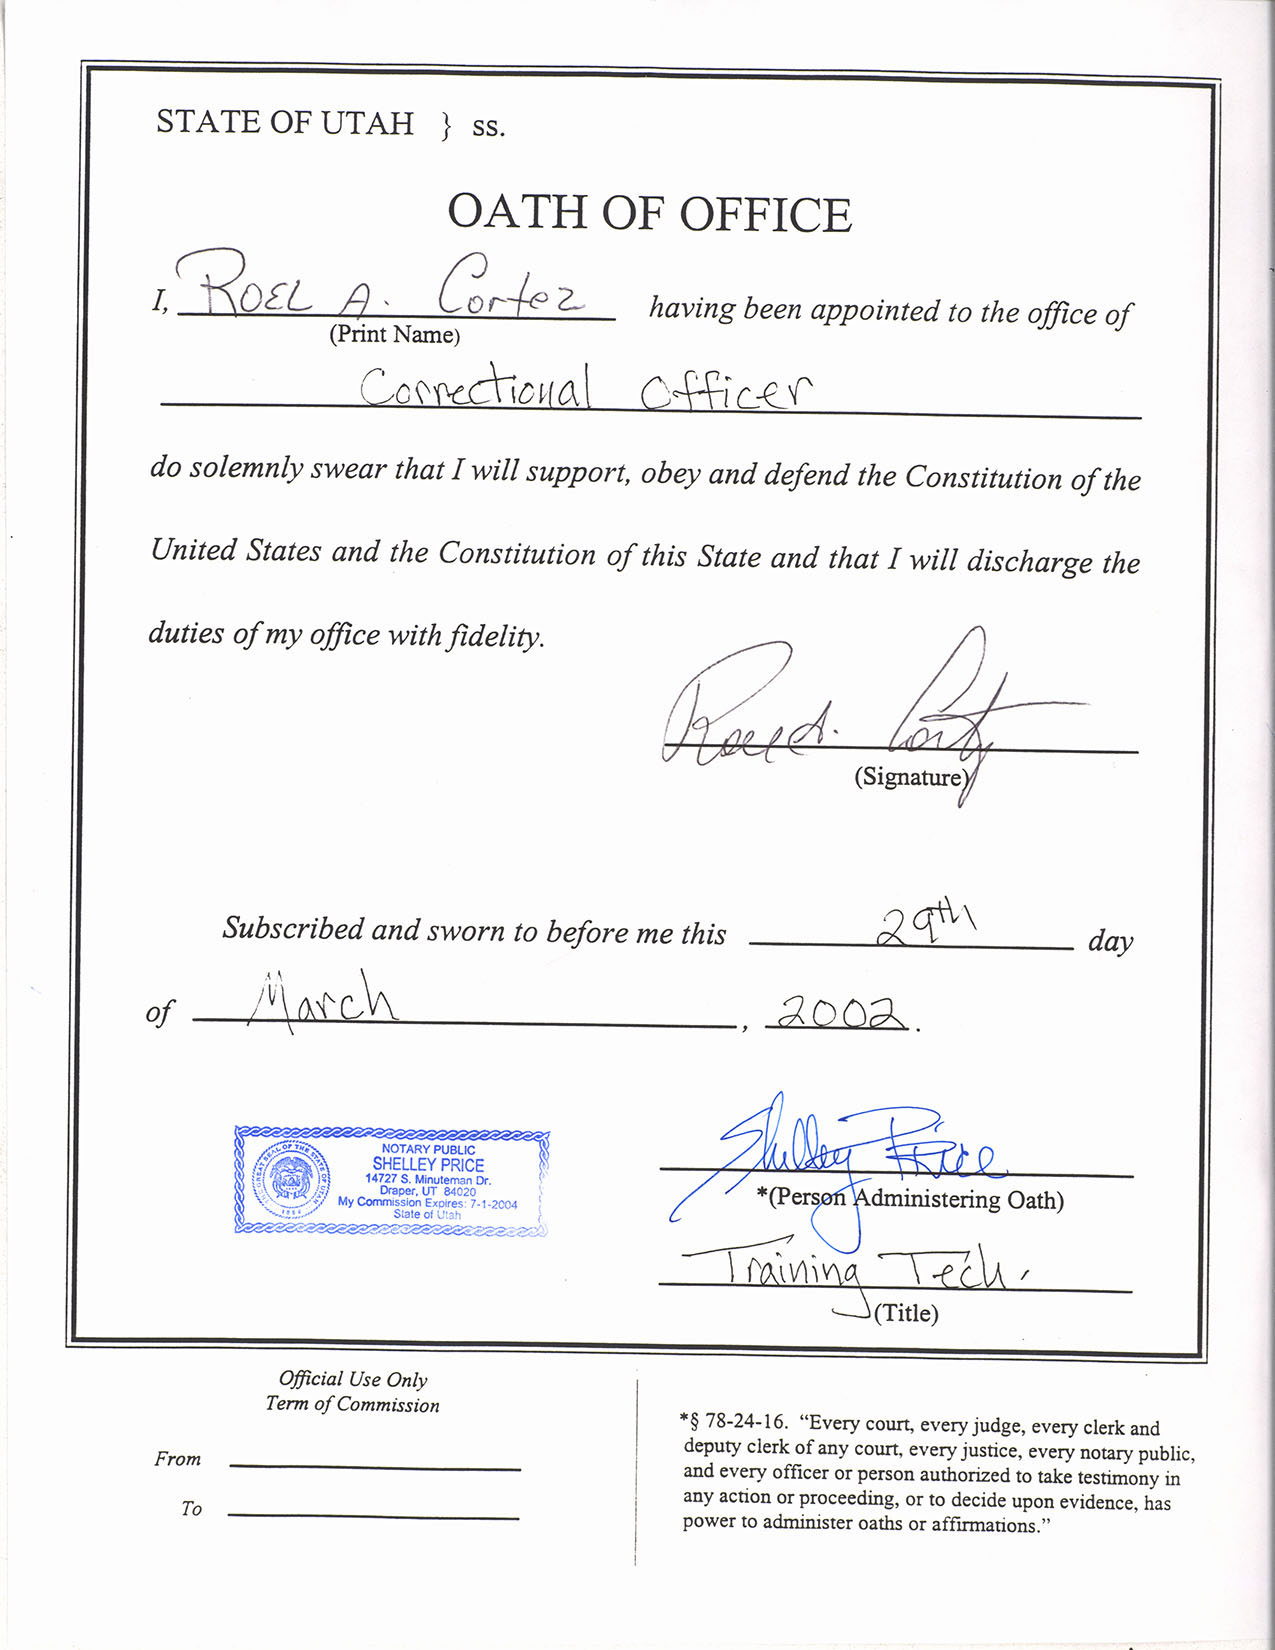 STATE OF UTAH } ss.
OATH OF OFFICE
I, ROEL A. Cortez having been appointed to the office of
(Print Name)
Correctional Officer
do solemnly swear that I will support, obey and defend the Constitution of the
United States and the Constitution of this State and that I will discharge the
duties of my office with fidelity.
Roel A. Cortez
(Signature)
Subscribed and sworn to before me this 29th day
of March, 2002.
THE GREAT SEAL OF THE STATE OF UTAH
1896
NOTARY PUBLIC
SHELLEY PRICE
14727 S. Minuteman Dr.
Draper, UT 84020
My Commission Expires: 7-1-2004
State of Utah
Shelley Price
*(Person Administering Oath)
Training Tech.
(Title)
Official Use Only
Term of Commission
From
To
*§ 78-24-16. “Every court, every judge, every clerk and
deputy clerk of any court, every justice, every notary public,
and every officer or person authorized to take testimony in
any action or proceeding, or to decide upon evidence, has
power to administer oaths or affirmations.”